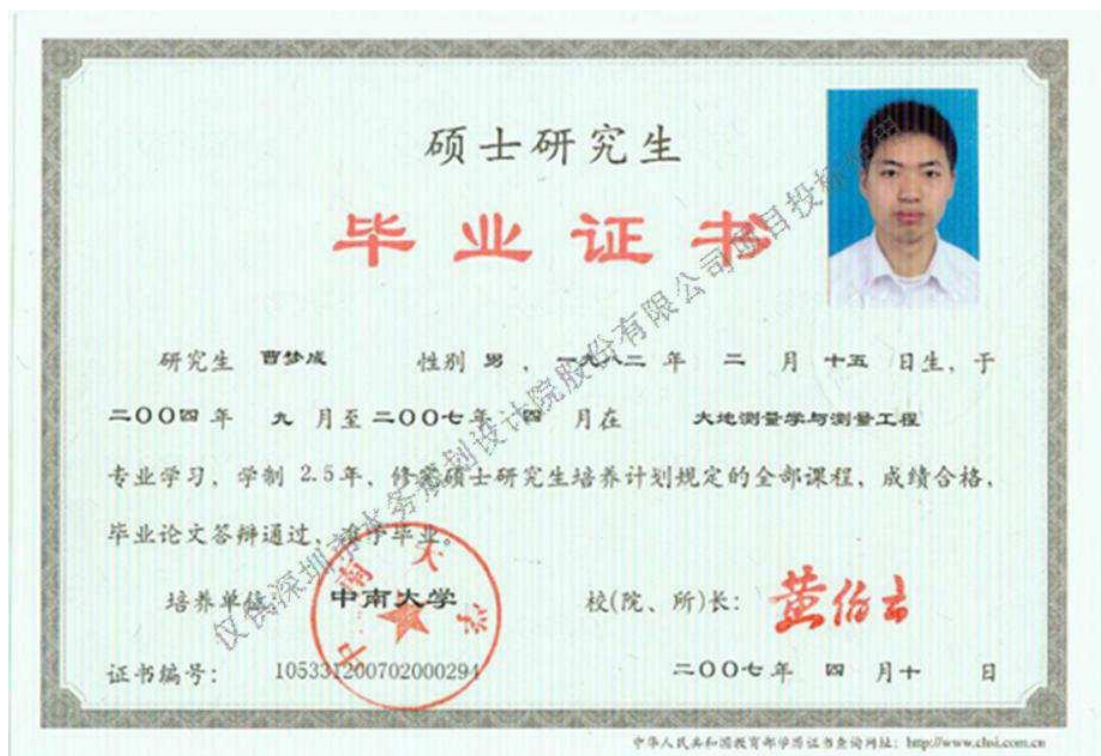 硕士研究生
毕业证书
研究生 曹梦成 性别 男 ，一九八二 年 二 月 十五 日生，于
二〇〇四年 九 月至二〇〇七年 四 月在 大地测量学与测量工程
专业学习，学制 2.5年，修完硕士研究生培养计划规定的全部课程，成绩合格，
毕业论文答辩通过，准予毕业。
培养单位：中南大学 校(院、所)长：黄伯云
中南大学
证书编号： 105331200702000294 二〇〇七年 四 月十 日
中华人民共和国教育部学历证书查询网址：http://www.chsi.com.cn